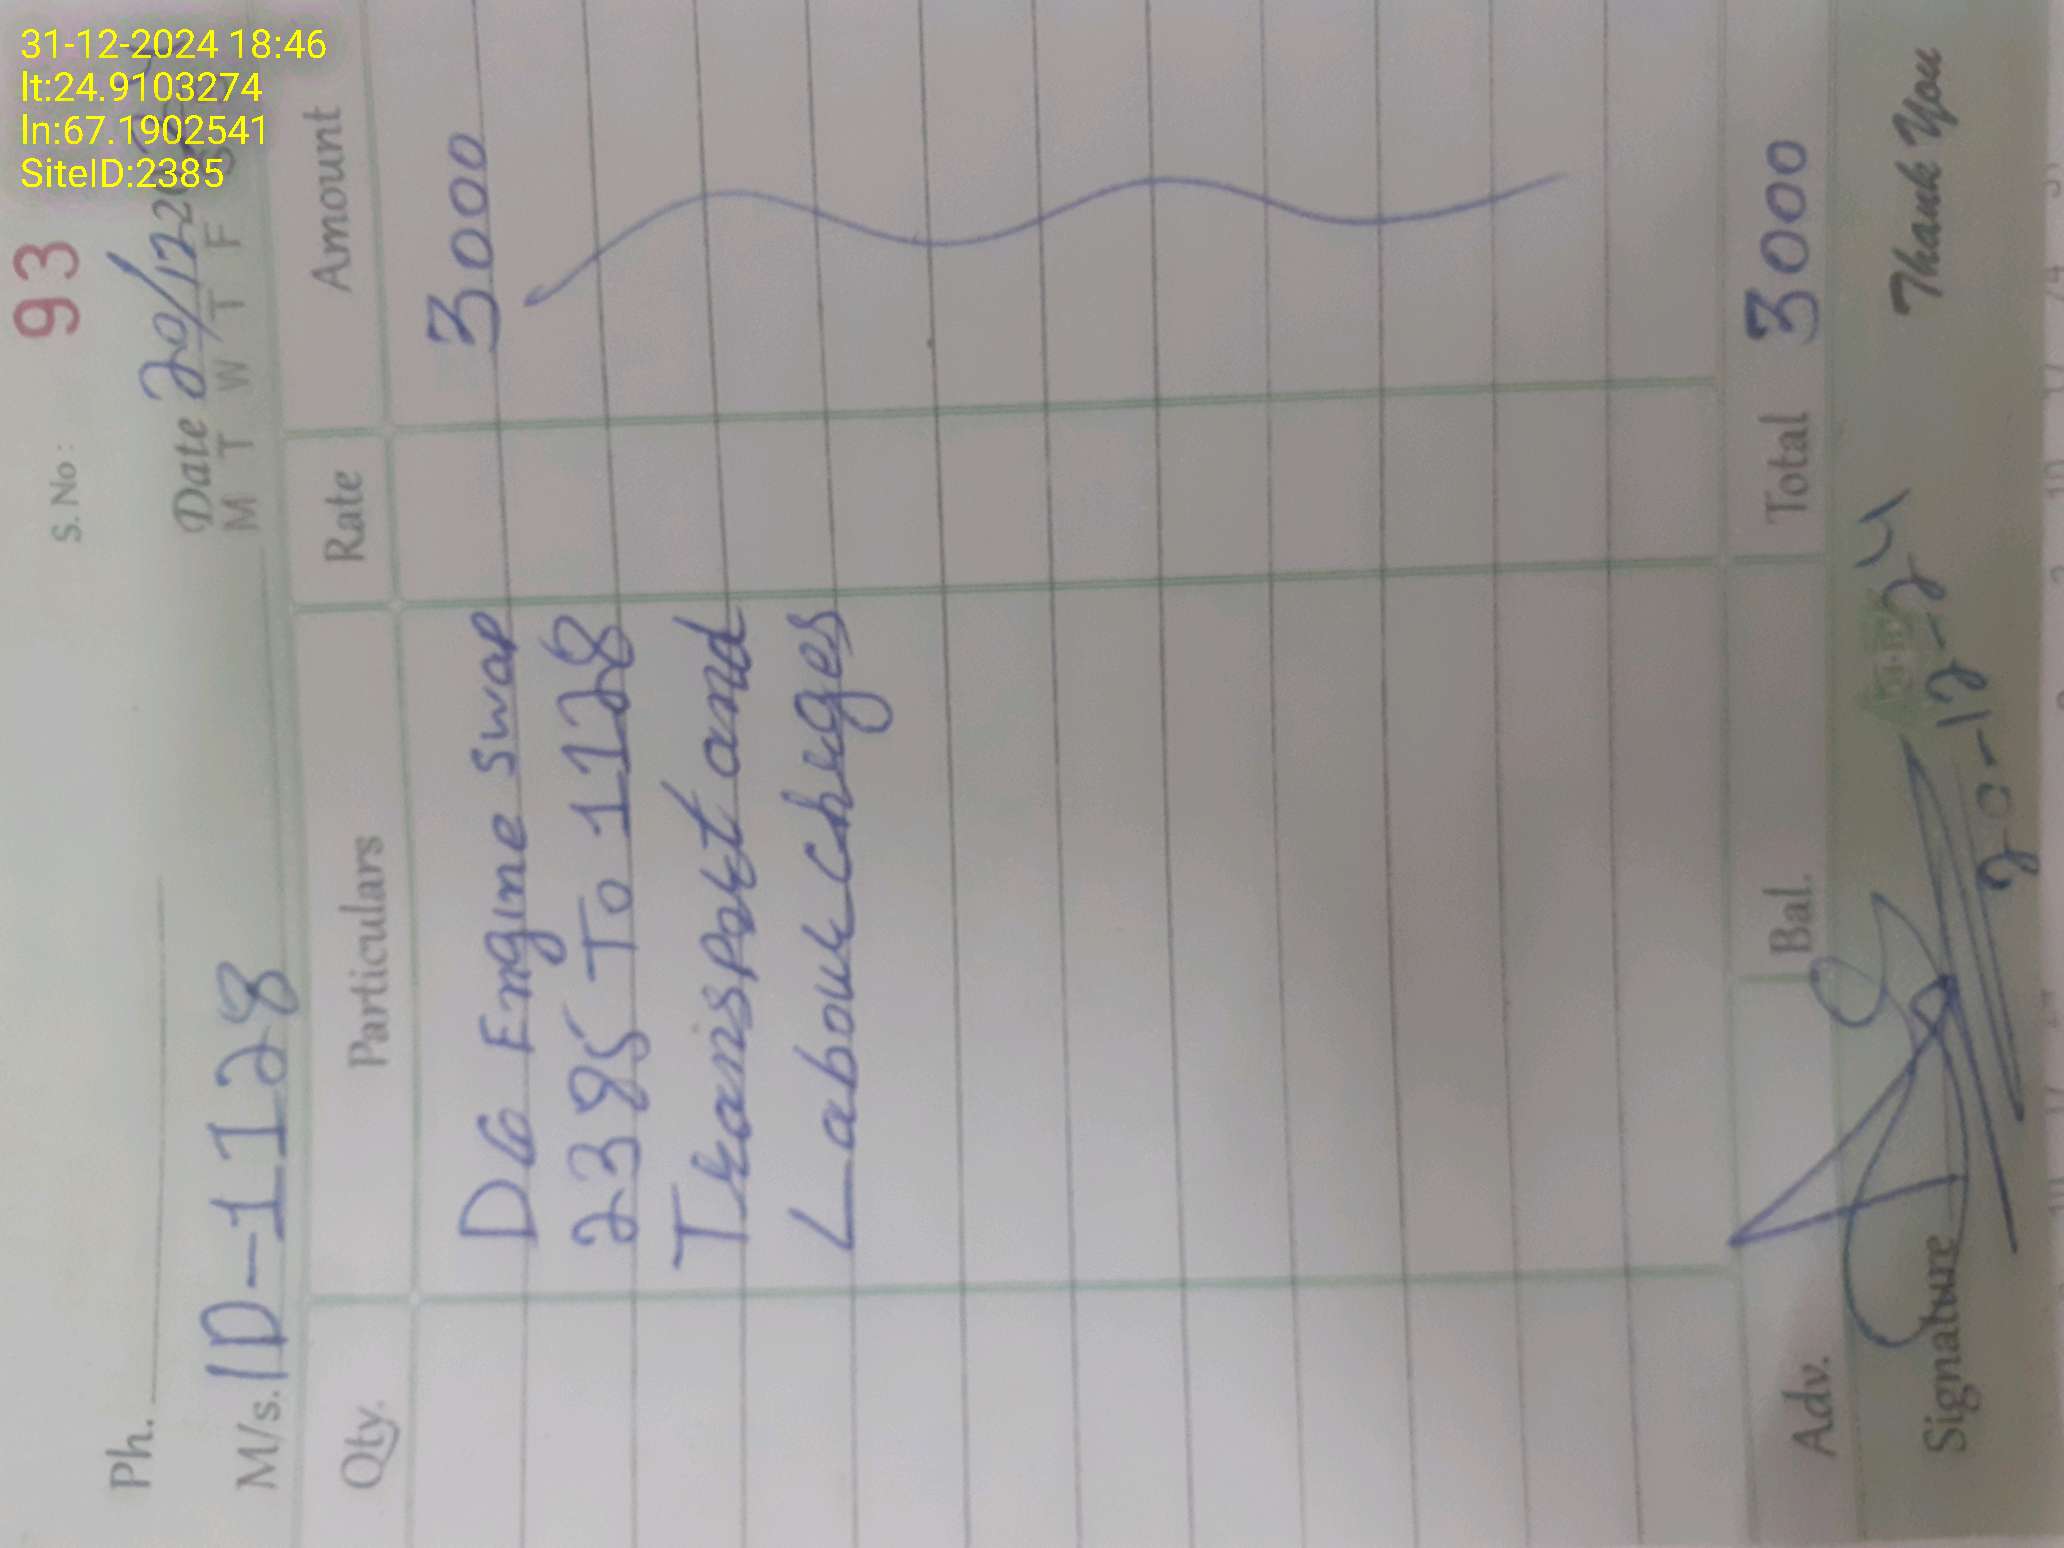 31-12-2024 18:46
lt:24.9103274
ln:67.1902541
SiteID:2385
S. No: 93
Ph.
Date 20/12
M T W T F
M/s. ID-1128
Qty. Particulars Rate Amount
DG Engine Swap 3000
2385 To 1128
Transport and
Labour charges
Adv. Bal. Total 3000
Signature Thank You
20-12-24